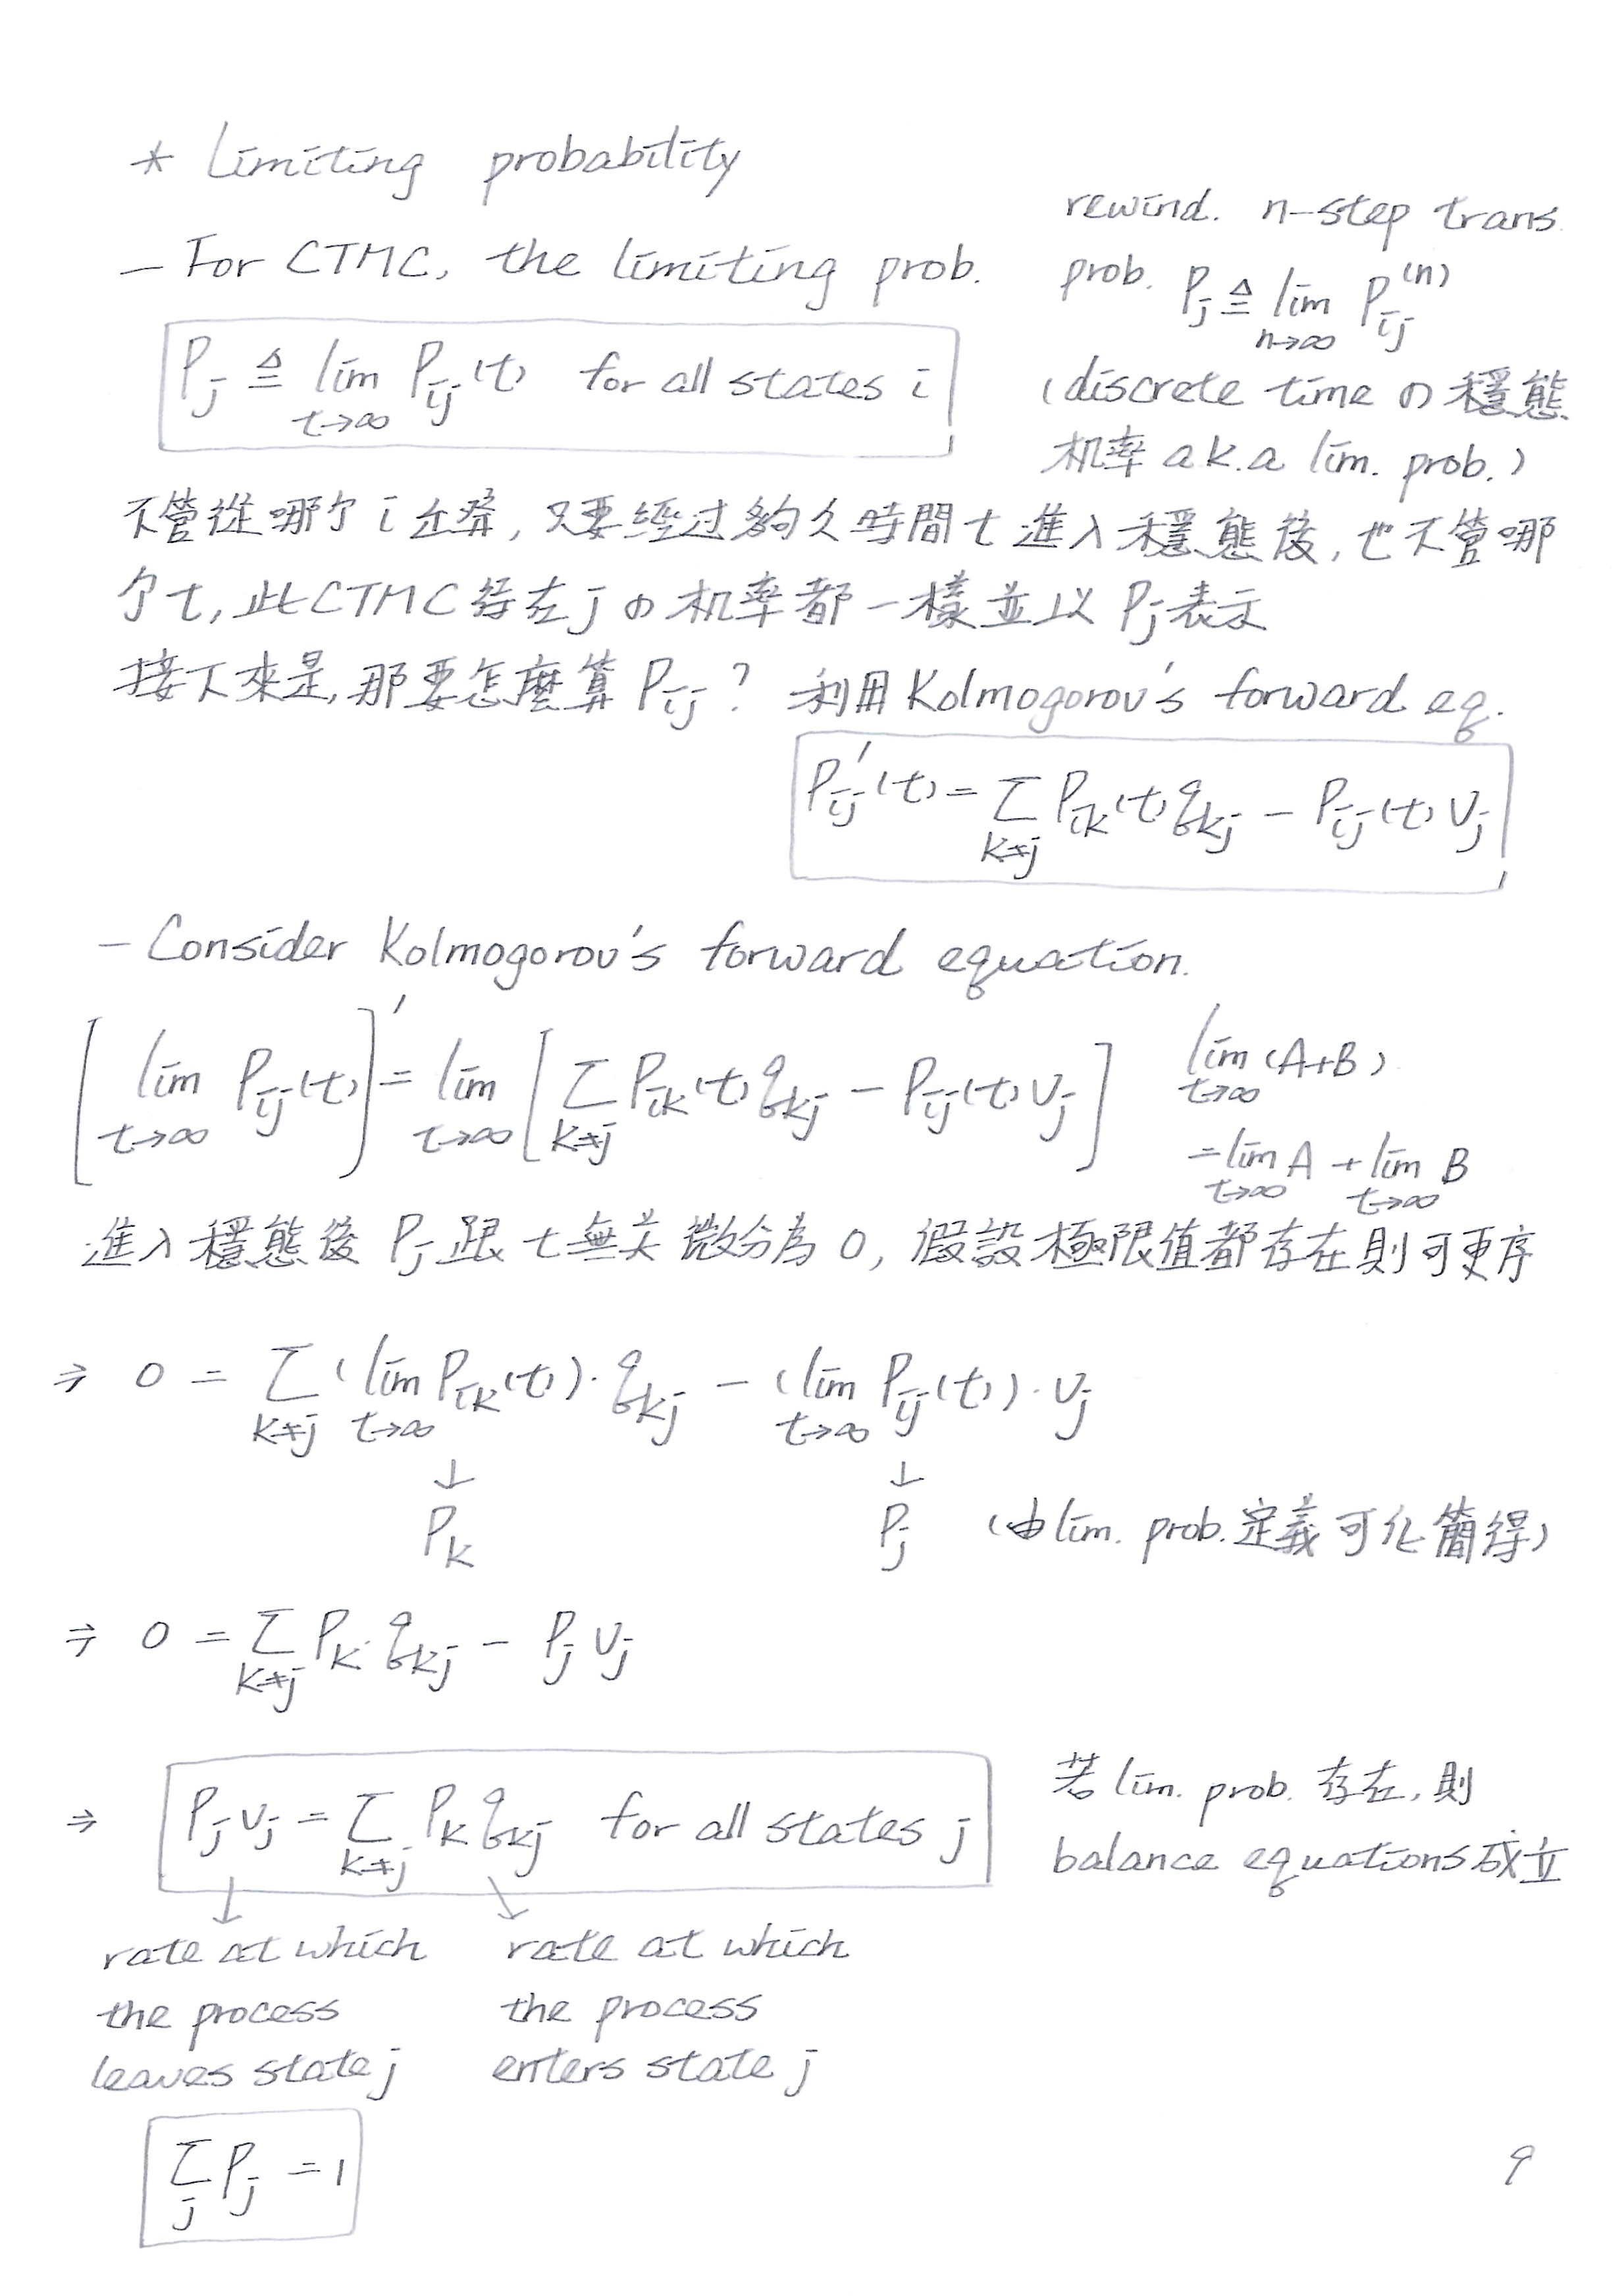 * Limiting probability
- For CTMC, the limiting prob.
P_j ≜ lim_{t→∞} P_ij(t) for all states i
rewind. n-step trans.
prob. P_j ≜ lim_{n→∞} P_ij^(n)
(discrete time の 穩態
机率 a.k.a lim. prob.)
不管從哪个 i 出發, 只要經过夠久時間 t 進入穩態後, 也不管哪
个 t, 此 CTMC 待在 j の 机率都一樣並以 P_j 表示
接下來是, 那要怎麼算 P_ij? 利用 Kolmogorov's forward eq.
P_ij'(t) = Σ_{k≠j} P_ik(t) q_kj - P_ij(t) v_j
- Consider Kolmogorov's forward equation.
[lim_{t→∞} P_ij(t)]' = lim_{t→∞} [Σ_{k≠j} P_ik(t) q_kj - P_ij(t) v_j]
lim_{t→∞} (A+B)
= lim_{t→∞} A + lim_{t→∞} B
進入穩態後 P_j 跟 t 無关 微分為 0, 假設極限值都存在則可更序
⇒ 0 = Σ_{k≠j} (lim_{t→∞} P_ik(t)) · q_kj - (lim_{t→∞} P_ij(t)) · v_j
↓ ↓
P_k P_j (由 lim. prob. 定義可化簡得)
⇒ 0 = Σ_{k≠j} P_k · q_kj - P_j v_j
⇒ P_j v_j = Σ_{k≠j} P_k q_kj for all states j
若 lim. prob. 存在, 則
balance equations 成立
rate at which
the process
leaves state j
rate at which
the process
enters state j
Σ_j P_j = 1
9